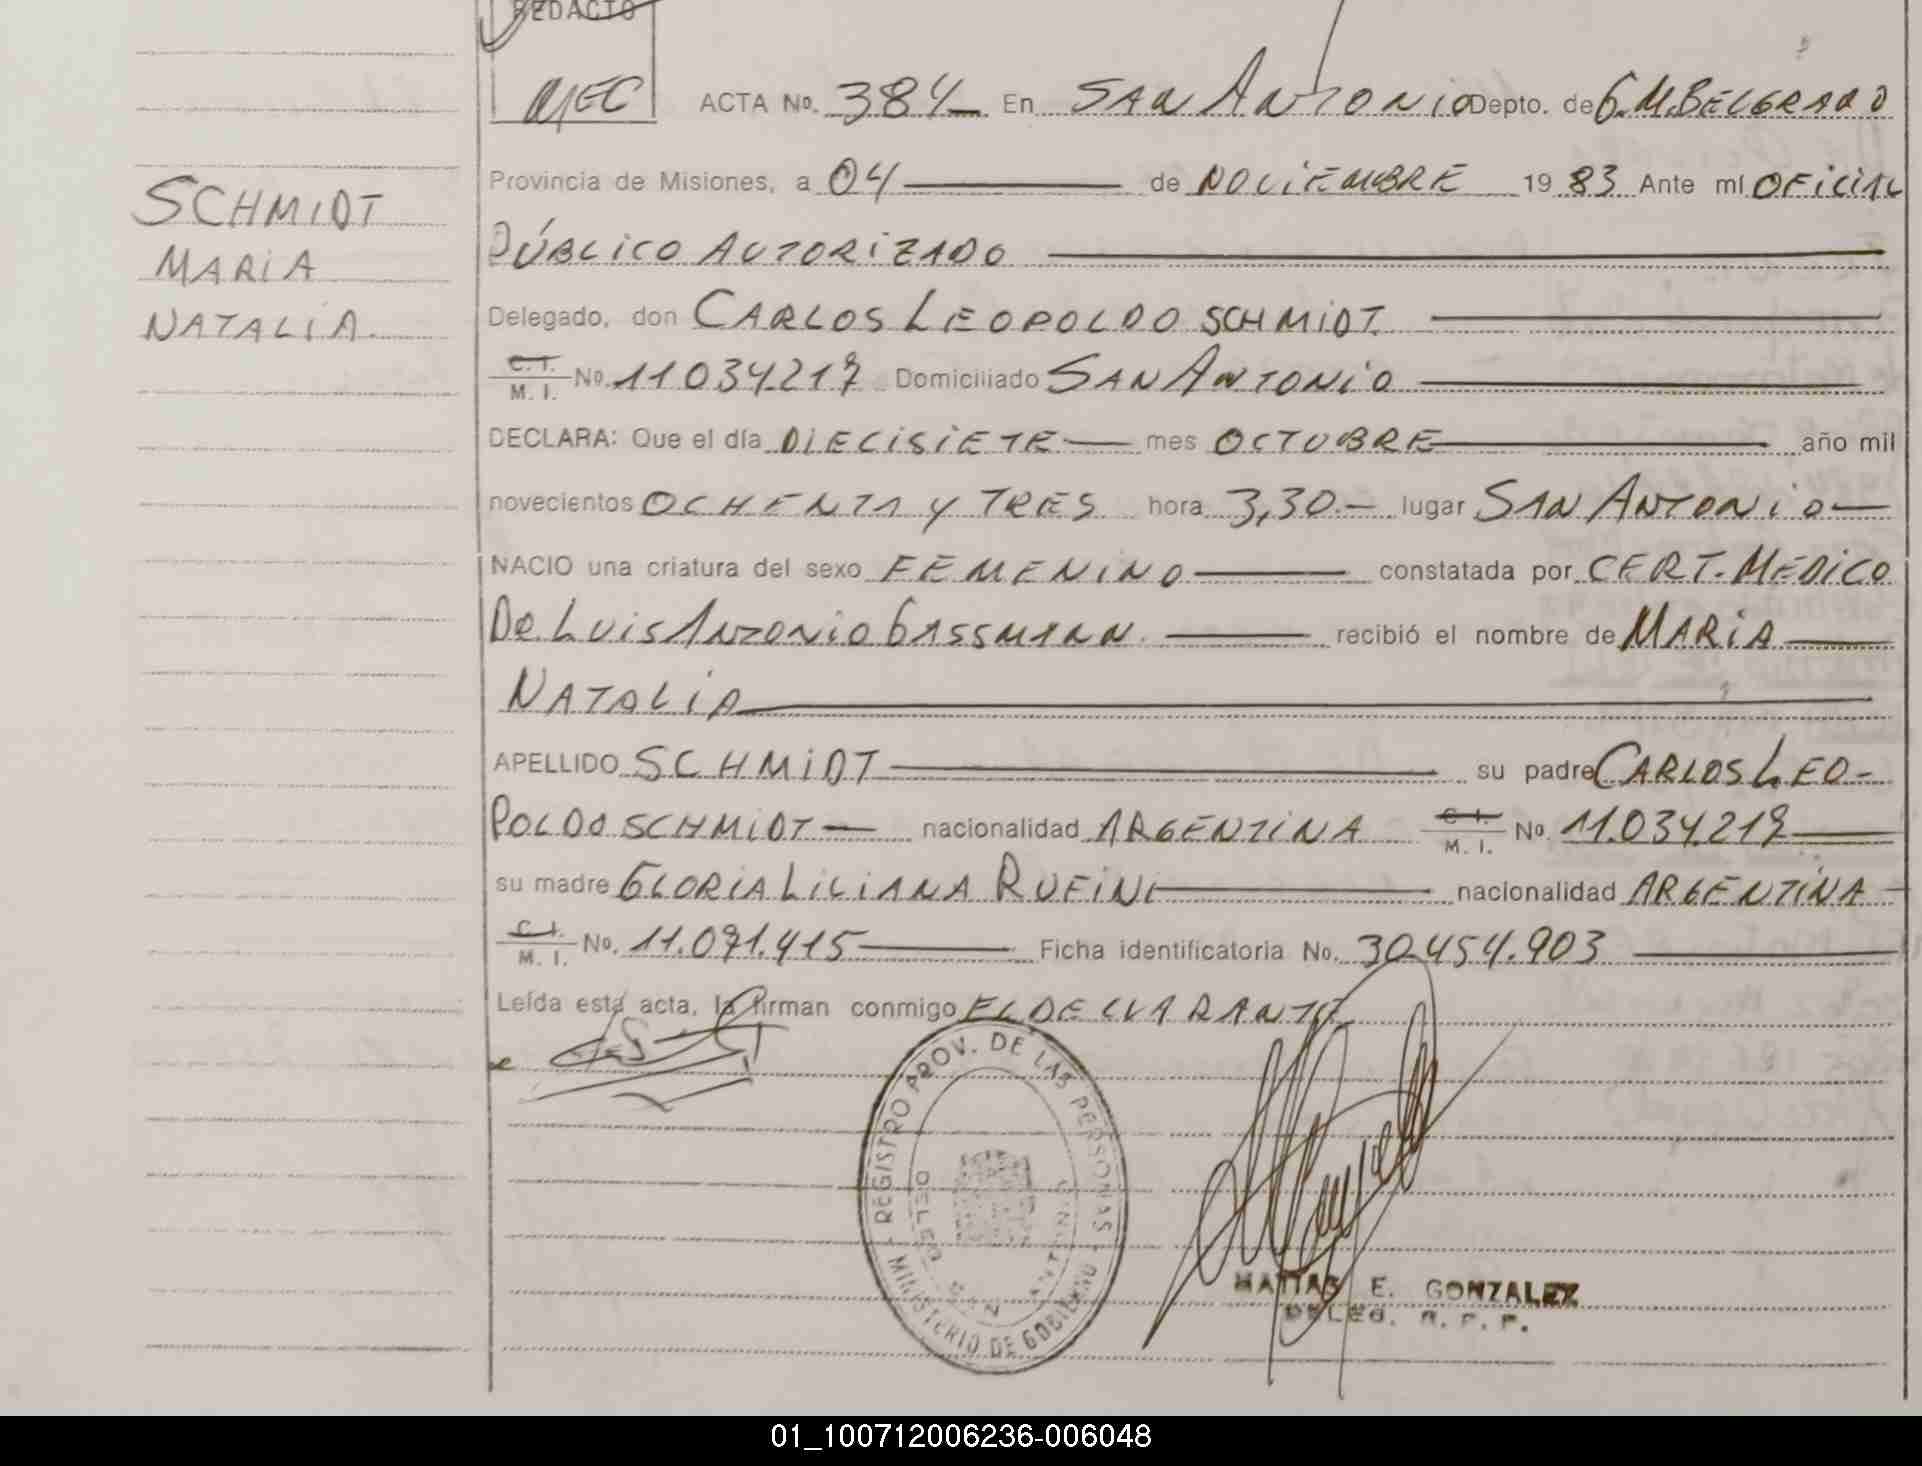 REDACTO
MEC
ACTA No. 384 En SAN ANTONIO Depto. de G.M.BELGRANO
Provincia de Misiones, a 04 de NOVIEMBRE 1983 Ante mí OFICIAL
PÚBLICO AUTORIZADO
Delegado, don CARLOS LEOPOLDO SCHMIDT
C. I. / M. I. No. 11034217 Domiciliado SAN ANTONIO
DECLARA: Que el día DIECISIETE mes OCTUBRE año mil
novecientos OCHENTA y TRES hora 3,30.- lugar SAN ANTONIO
NACIO una criatura del sexo FEMENINO constatada por CERT. MEDICO
DR. LUIS ANTONIO GASSMANN. recibió el nombre de MARIA
NATALIA
APELLIDO SCHMIDT su padre CARLOS LEO-
POLDO SCHMIDT nacionalidad ARGENTINA C. I. / M. I. No. 11.034.217
su madre GLORIA LILIANA RUFINI nacionalidad ARGENTINA
C. I. / M. I. No. 11.071.415 Ficha identificatoria No. 30.454.903
Leída está acta, la firman conmigo EL DECLARANTE
SCHMIDT
MARIA
NATALIA.
REGISTRO PROV. DE LAS PERSONAS
MINISTERIO DE GOBIERNO
SAN ANTONIO
MATIAS E. GONZALEZ
DELEG. R. P. P.
01_100712006236-006048